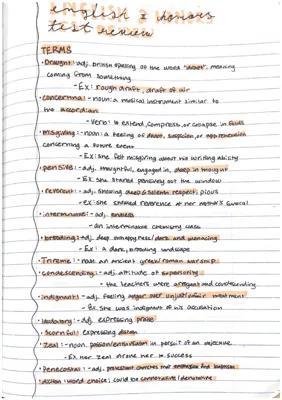 english 2 honors
test review
TERMS
• Draught: adj. british spelling of the word "draft", meaning
coming from something
- Ex: rough draft, draft of air
• concertina: - noun: a musical instrument similar to
the accordian
- Verb: to extend, compress, or collapse in folds
• misgiving: - noun: a feeling of doubt, suspicion, or apprehension
concerning a future event
- Ex: she felt misgiving about his writing ability
• pensive: - adj. thoughtful, engaged in, deep in thought
- Ex. she stared pensively out the window
• reverent: - adj. showing deep & silent respect, pious
- ex: she showed reverence at her
• interminable: - adj. endless
- an interminable chemistry class
• brooding: - adj. deep unhappyness/dark and menacing
- Ex: a dark, brooding landscape
• Trireme: - noun: an ancient greek/roman warship
• condescending: - adj. attitude of superiority
- the teachers were arrogant and condescending
• indignant: - adj. feeling anger over unjust/unfair treatment
- Ex. she was indignant of his accusation
• laudatory: - adj. expressing praise
• Scornful: expressing disdain
• Zeal: - noun. passion/enthusiasm in persuit of an objective
- Ex. her zeal drove her to success
• Penecostal: - adj. protestant churches that emphasize
• diction: word choice; could be connotative/denotative